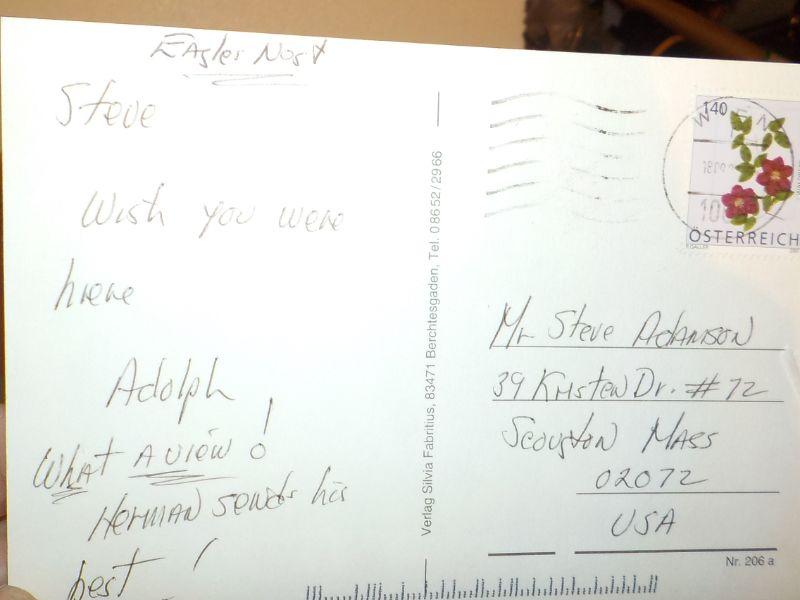 Eagles Nest
Steve
Wish you were
here
Adolph
What A view!
Herman sends his
best!
Verlag Silvia Fabritius, 83471 Berchtesgaden, Tel. 08652/2966
140
WIEN
ÖSTERREICH
Mr Steve Adamson
39 Kristen Dr. #72
Mass
02072
USA
Nr. 206 a